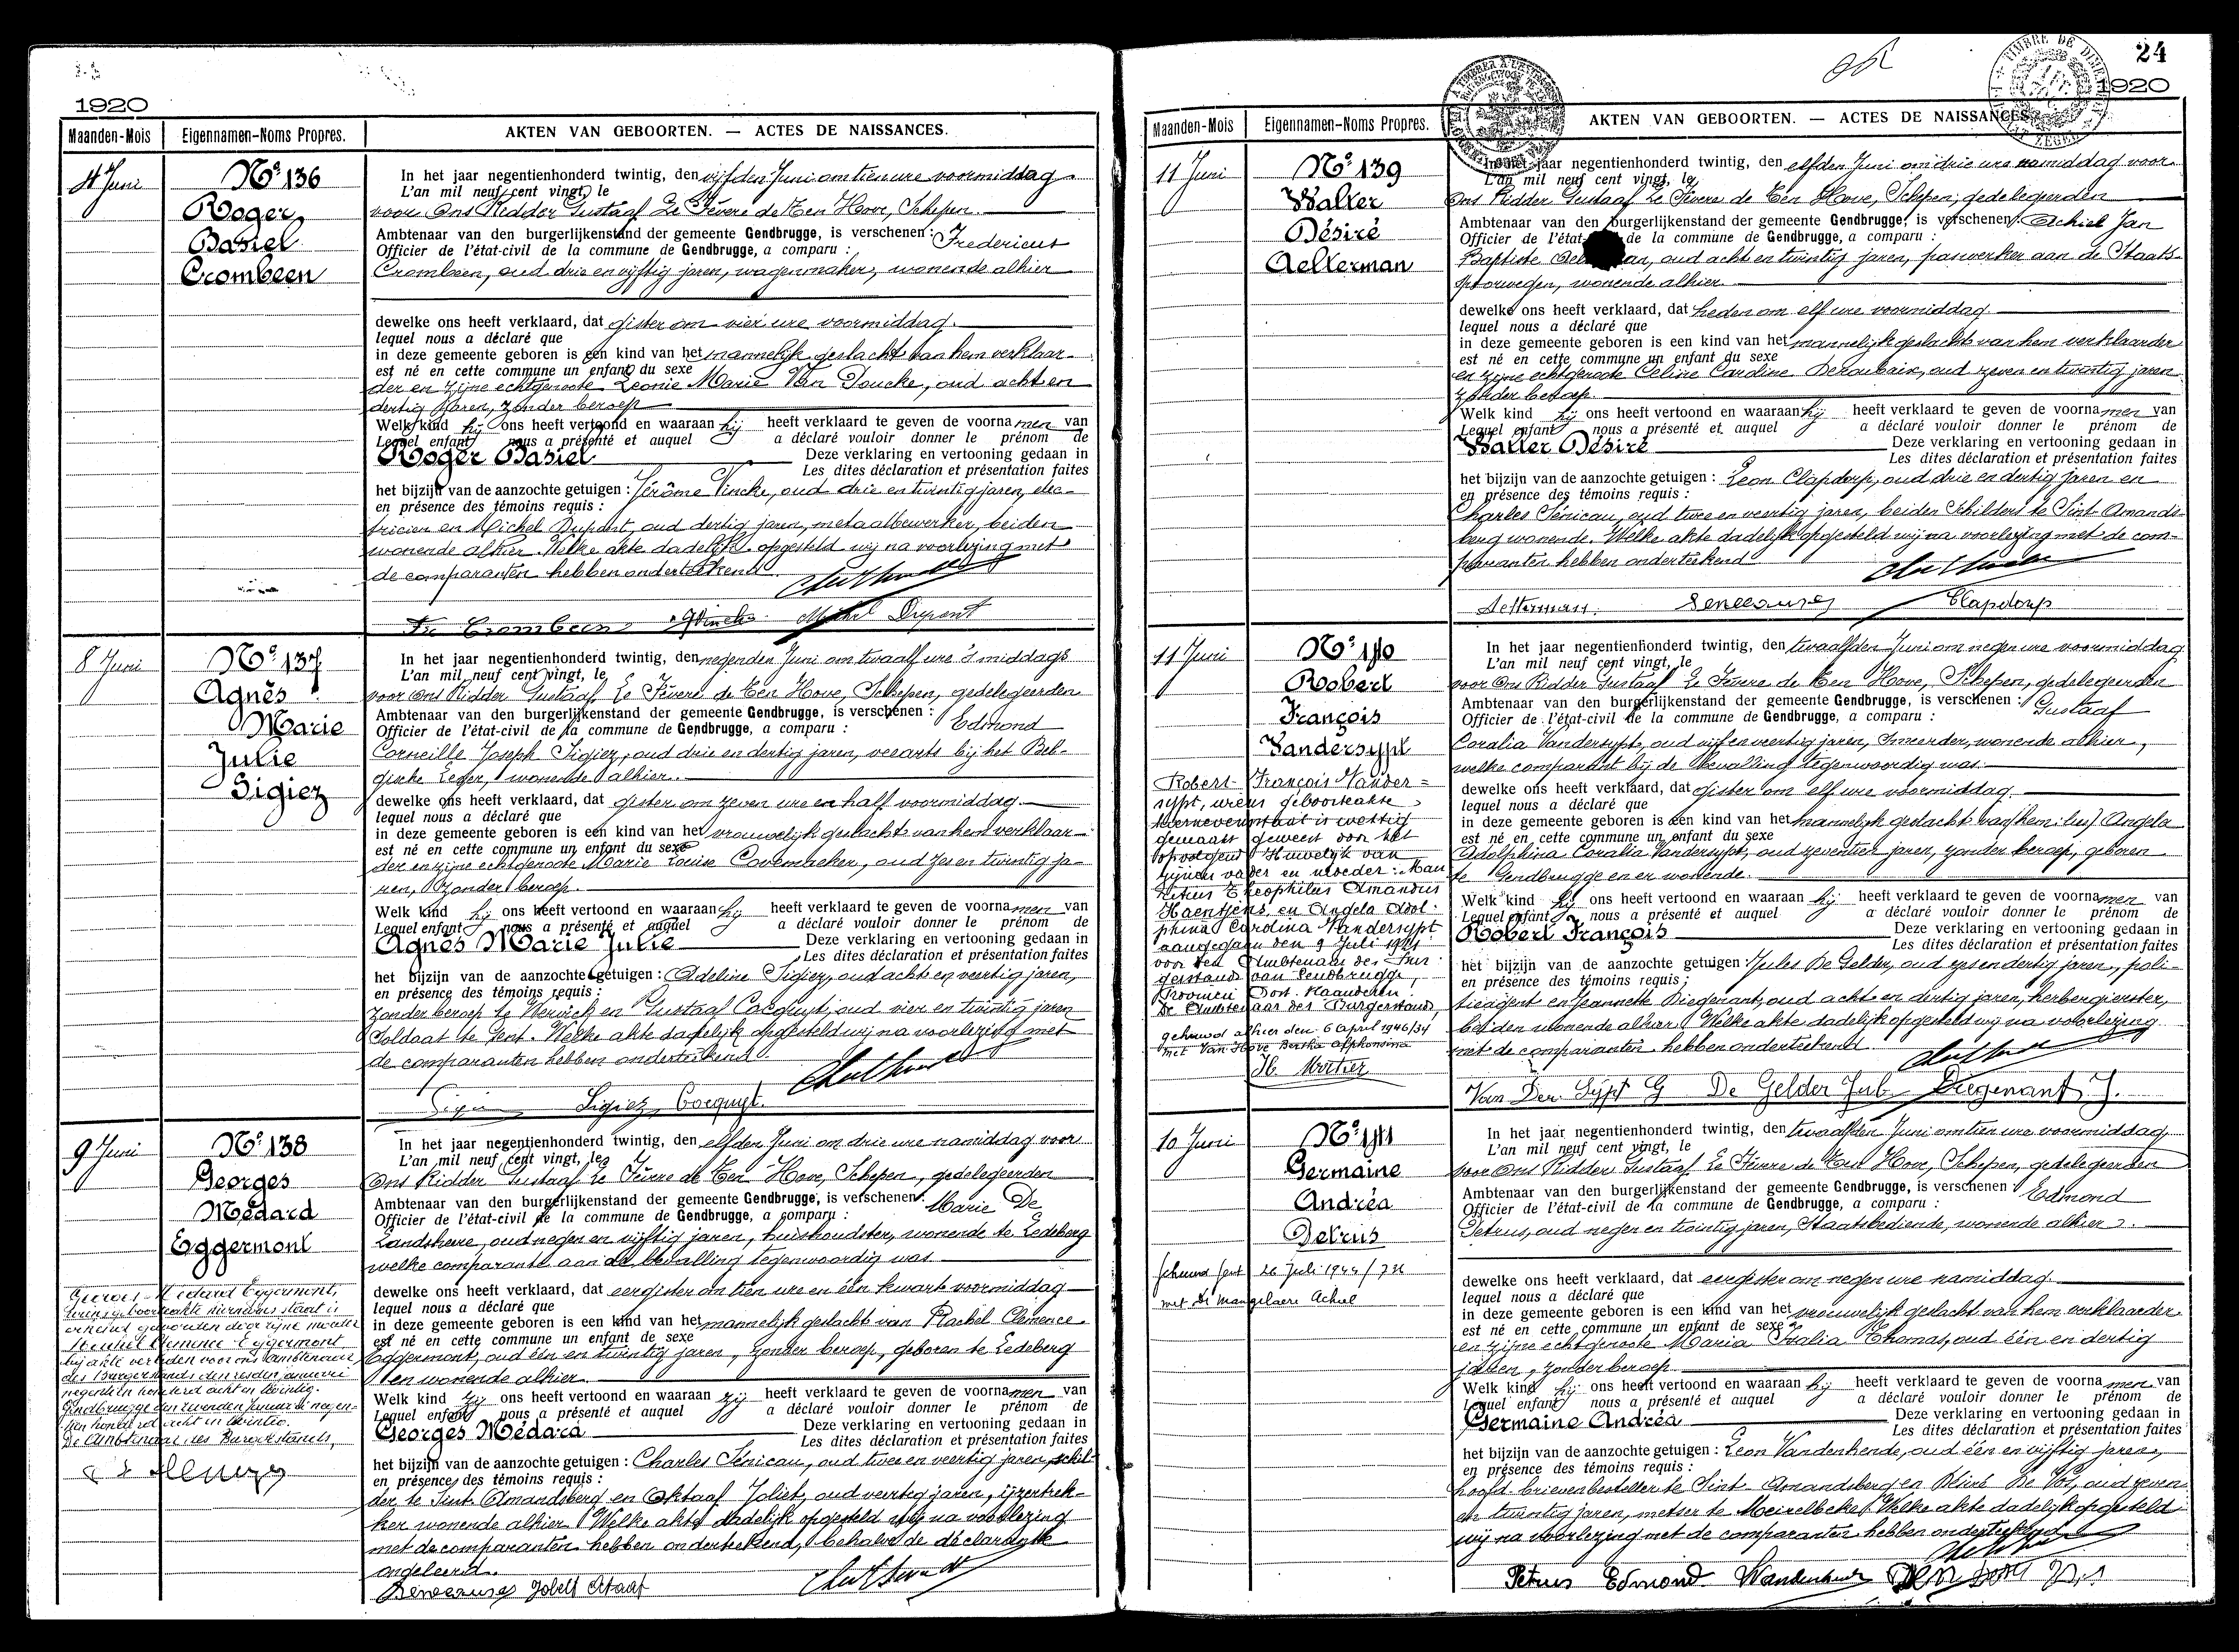 1920
Maanden-Mois
Eigennamen-Noms Propres.
AKTEN VAN GEBOORTEN. — ACTES DE NAISSANCES.
4 Juni
No 136
Roger
Basiel
Crombeen
In het jaar negentienhonderd twintig, den vijfden Juni om tien ure voormiddag
L'an mil neuf cent vingt, le
voor Ons Ridder Gustaaf Le Fèvere de Ten Hove, Schepen
Ambtenaar van den burgerlijkenstand der gemeente Gendbrugge, is verschenen: Fredericus
Officier de l'état-civil de la commune de Gendbrugge, a comparu :
Crombeen, oud drie en vijftig jaren, wagenmaker, wonende alhier
dewelke ons heeft verklaard, dat gister om vier ure voormiddag
lequel nous a déclaré que
in deze gemeente geboren is een kind van het mannelijk geslacht van hem verklaar-
est né en cette commune un enfant du sexe
der en zijne echtgenoote Leonie Marie Van Doucke, oud acht en
dertig jaren, zonder beroep
Welk kind hij ons heeft vertoond en waaraan hij heeft verklaard te geven de voornamen van
Lequel enfant nous a présenté et auquel a déclaré vouloir donner le prénom de
Roger Basiel Deze verklaring en vertooning gedaan in
Les dites déclaration et présentation faites
het bijzijn van de aanzochte getuigen : Jérôme Vincke, oud drie en twintig jaren, elec-
en présence des témoins requis :
tricien en Michel Dupont, oud dertig jaren, metaalbewerker, beiden
wonende alhier. Welke akte dadelijk opgesteld wij na voorlezing met
de comparanten hebben onderteekend
Fr Crombeen Vincke Michel Dupont
8 Juni
No 137
Agnès
Marie
Julie
Sigiez
In het jaar negentienhonderd twintig, den negenden Juni om twaalf ure 's middags
L'an mil neuf cent vingt, le
voor Ons Ridder Gustaaf Le Fèvere de Ten Hove, Schepen, gedelegeerden
Ambtenaar van den burgerlijkenstand der gemeente Gendbrugge, is verschenen : Edmond
Officier de l'état-civil de la commune de Gendbrugge, a comparu :
Corneille Joseph Sigiez, oud drie en dertig jaren, veearts bij het Bel-
gische Leger, wonende alhier.
dewelke ons heeft verklaard, dat gister om zeven ure en half voormiddag
lequel nous a déclaré que
in deze gemeente geboren is een kind van het vrouwelijk geslacht van hem verklaar-
est né en cette commune un enfant du sexe
der en zijne echtgenoote Marie Louise Covemaeker, oud zes en twintig ja-
ren, zonder beroep.
Welk kind hij ons heeft vertoond en waaraan hij heeft verklaard te geven de voornamen van
Lequel enfant nous a présenté et auquel a déclaré vouloir donner le prénom de
Agnès Marie Julie Deze verklaring en vertooning gedaan in
Les dites déclaration et présentation faites
het bijzijn van de aanzochte getuigen : Adeline Sigiez, oud acht en veertig jaren,
en présence des témoins requis :
zonder beroep te Werwick en Gustaaf Cocquyt, oud vier en twintig jaren
Soldaat te Gent. Welke akte dadelijk opgesteld wij na voorlezing met
de comparanten hebben onderteekend
Sigiez Cocquyt.
9 Juni
No 138
Georges
Médard
Eggermont
Georges Médard Eggermont,
wiens geboorteakte hiernevens staat is
erkend geworden door zijne moeder
Rachel Clemence Eggermont
bij akte verleden voor ons Ambtenaar
des Burgerstands den zesden januari
negentien honderd acht en twintig.
Gendbrugge den zesden Januari negen-
tien honderd acht en twintig.
De Ambtenaar des Burgerstands,
In het jaar negentienhonderd twintig, den elfden Juni om drie ure namiddag voor
L'an mil neuf cent vingt, le
Ons Ridder Gustaaf Le Fèvere de Ten Hove, Schepen, gedelegeerden
Ambtenaar van den burgerlijkenstand der gemeente Gendbrugge, is verschenen : Marie De
Officier de l'état-civil de la commune de Gendbrugge, a comparu :
Landsheere, oud negen en vijftig jaren, huishoudster, wonende te Ledeberg
welke comparante aan de bevalling tegenwoordig was
dewelke ons heeft verklaard, dat eergister om tien ure en één kwart voormiddag
lequel nous a déclaré que
in deze gemeente geboren is een kind van het mannelijk geslacht van Rachel Clemence
est né en cette commune un enfant de sexe
Eggermont, oud één en twintig jaren, zonder beroep, geboren te Ledeberg
en wonende alhier.
Welk kind zij ons heeft vertoond en waaraan zij heeft verklaard te geven de voornamen van
Lequel enfant nous a présenté et auquel a déclaré vouloir donner le prénom de
Georges Médard Deze verklaring en vertooning gedaan in
Les dites déclaration et présentation faites
het bijzijn van de aanzochte getuigen : Charles Sénicau, oud twee en veertig jaren, schil-
en présence des témoins requis :
der te Sint Amandsberg en Oktaaf Joliet, oud veertig jaren, ijzertrek-
ker wonende alhier. Welke akte dadelijk opgesteld wij na voorlezing
met de comparanten hebben onderteekend, behalve de declarante
ongeleerd.
24
1920
Maanden-Mois
Eigennamen-Noms Propres.
AKTEN VAN GEBOORTEN. — ACTES DE NAISSANCES.
11 Juni
No 139
Walter
Désiré
Aelterman
In het jaar negentienhonderd twintig, den elfden Juni om drie ure namiddag voor
L'an mil neuf cent vingt, le
Ons Ridder Gustaaf Le Fèvere de Ten Hove, Schepen, gedelegeerden
Ambtenaar van den burgerlijkenstand der gemeente Gendbrugge, is verschenen : Achiel Jan
Officier de l'état- de la commune de Gendbrugge, a comparu :
Baptiste Aelterman, oud acht en twintig jaren, paswerker aan de Staats-
spoorwegen, wonende alhier.
dewelke ons heeft verklaard, dat heden om elf ure voormiddag
lequel nous a déclaré que
in deze gemeente geboren is een kind van het mannelijk geslacht van hem verklaarder
est né en cette commune un enfant du sexe
en zijne echtgenoote Celine Caroline Deroubaix, oud zeven en twintig jaren
zonder beroep.
Welk kind hij ons heeft vertoond en waaraan hij heeft verklaard te geven de voornamen van
Lequel enfant nous a présenté et auquel a déclaré vouloir donner le prénom de
Walter Désiré Deze verklaring en vertooning gedaan in
Les dites déclaration et présentation faites
het bijzijn van de aanzochte getuigen : Leon Clapdorp, oud drie en dertig jaren en
en présence des témoins requis :
Charles Sénicau, oud twee en veertig jaren, beiden Schilders te Sint Amands-
berg wonende. Welke akte dadelijk opgesteld wij na voorlezing met de com-
paranten hebben onderteekend
Aelterman. Clapdorp
11 Juni
No 140
Robert
François
Vandersypt
Robert François Vander=
sypt, wiens geboorteakte
hiernevens staat is wettig
gemaakt geweest door het
opvolgend Huwelijk van
zijnen vader en moeder: Mau
ritius Theophilus Amandus
Haentjens en Angela Adol-
phina Carolina Vandersypt
aangegaan den 9 Juli 1921
voor den Ambtenaar des Bur-
gerstands van Gendbrugge,
Provincie Oost-Vlaanderen.
De Ambtenaar des Burgerstands,
gehuwd alhier den 6 April 1946/34
met Van Hove Bertha Alphonsina
H. Mortier
In het jaar negentienhonderd twintig, den twaalfden Juni om negen ure voormiddag
L'an mil neuf cent vingt, le
voor Ons Ridder Gustaaf Le Fèvere de Ten Hove, Schepen, gedelegeerden
Ambtenaar van den burgerlijkenstand der gemeente Gendbrugge, is verschenen : Gustaaf
Officier de l'état-civil de la commune de Gendbrugge, a comparu :
Coralia Vandersypt, oud vijf en veertig jaren, Smeerder, wonende alhier,
welke comparant bij de bevalling tegenwoordig was
dewelke ons heeft verklaard, dat gister om elf ure voormiddag
lequel nous a déclaré que
in deze gemeente geboren is een kind van het mannelijk geslacht van Angela
est né en cette commune un enfant du sexe
Adolphina Coralia Vandersypt, oud zeventien jaren, zonder beroep, geboren
te Gendbrugge en er wonende.
Welk kind hij ons heeft vertoond en waaraan hij heeft verklaard te geven de voornamen van
Lequel enfant nous a présenté et auquel a déclaré vouloir donner le prénom de
Robert François Deze verklaring en vertooning gedaan in
Les dites déclaration et présentation faites
het bijzijn van de aanzochte getuigen : Jules De Gelder, oud zes en dertig jaren, poli-
en présence des témoins requis :
tieagent en Jeannette Diegenant, oud acht en dertig jaren, herbergierster,
beiden wonende alhier. Welke akte dadelijk opgesteld wij na voorlezing
met de comparanten hebben onderteekend
Van Den Sypt G De Gelder Jul Diegenant J.
10 Juni
No 141
Germaine
Andréa
Petrus
gehuwd Gent 26 Juli 1944/
met De Mangelaere Achiel
In het jaar negentienhonderd twintig, den twaalfden Juni om tien ure voormiddag
L'an mil neuf cent vingt, le
voor Ons Ridder Gustaaf Le Fèvere de Ten Hove, Schepen, gedelegeerden
Ambtenaar van den burgerlijkenstand der gemeente Gendbrugge, is verschenen Edmond
Officier de l'état-civil de la commune de Gendbrugge, a comparu :
Petrus, oud negen en twintig jaren, Staatsbediende, wonende alhier.
dewelke ons heeft verklaard, dat eergister om negen ure namiddag
lequel nous a déclaré que
in deze gemeente geboren is een kind van het vrouwelijk geslacht van hem verklaarder
est né en cette commune un enfant du sexe
en zijne echtgenoote Maria Thomas, oud één en dertig
jaren, zonder beroep
Welk kind hij ons heeft vertoond en waaraan hij heeft verklaard te geven de voornamen van
Lequel enfant nous a présenté et auquel a déclaré vouloir donner le prénom de
Germaine Andréa Deze verklaring en vertooning gedaan in
Les dites déclaration et présentation faites
het bijzijn van de aanzochte getuigen : Leon Vandenhende, oud één en vijftig jaren,
en présence des témoins requis :
hoofd brievenbesteller te Sint Amandsberg en Désiré De Vos, oud zeven
en twintig jaren, metser te Meirelbeke. Welke akte dadelijk opgesteld
wij na voorlezing met de comparanten hebben onderteekend
Petrus Edmond Vandenhende